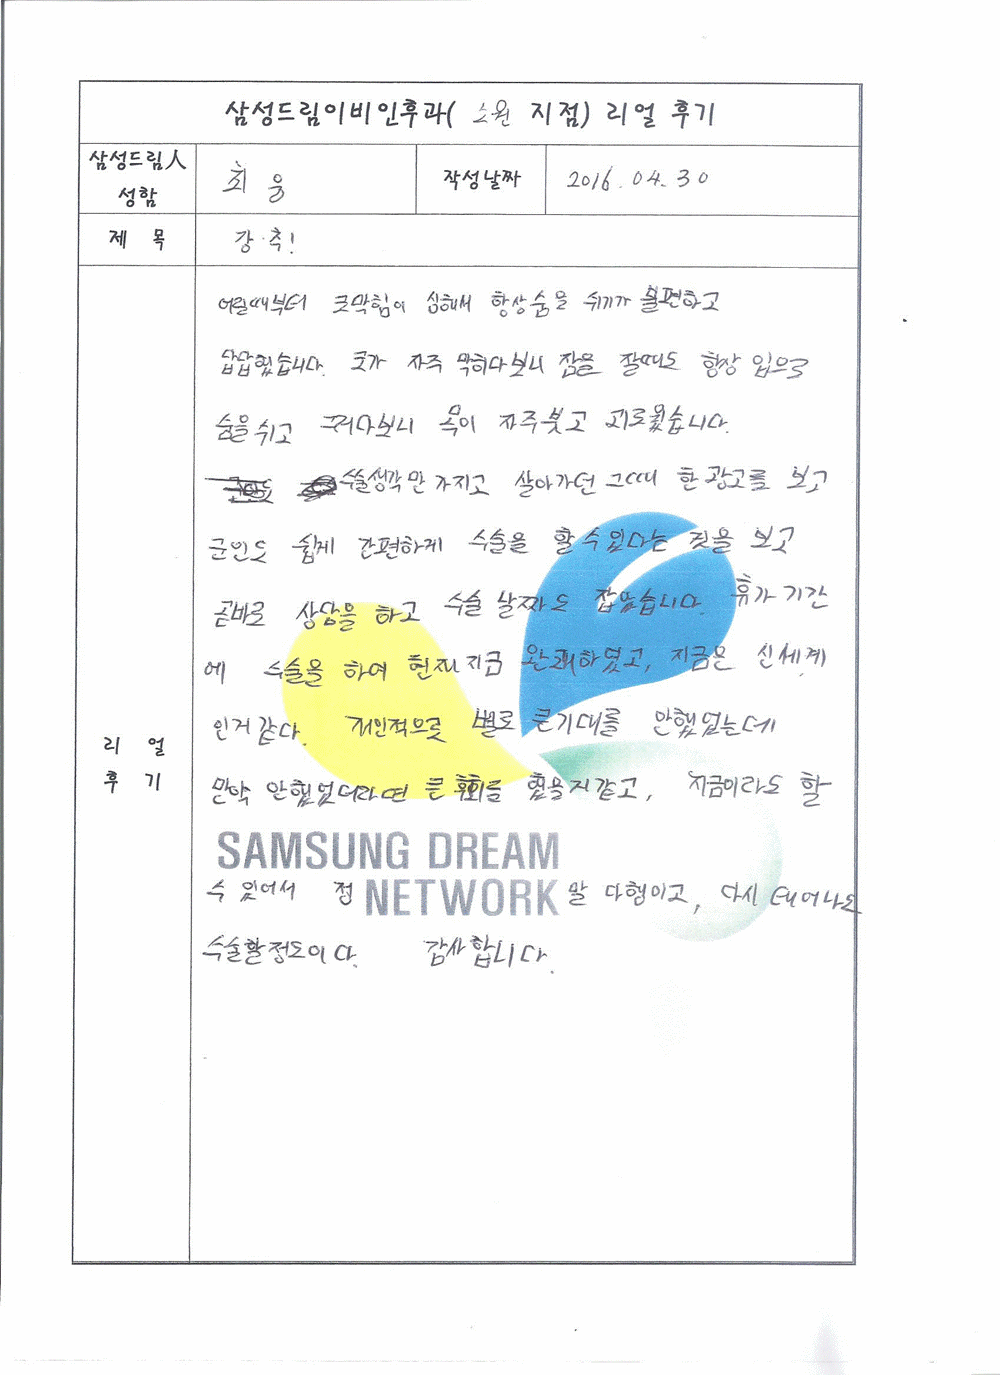 삼성드림이비인후과( 수원 지점) 리얼 후기
삼성드림人
성함
최 웅
작성날짜
2016.04.30
제 목
강·추!
리 얼
후 기
어릴때부터 코막힘이 심해서 항상 숨을 쉬기가 불편하고
답답했습니다. 코가 자주 막히다보니 잠을 잘때도 항상 입으로
숨을쉬고 그러다보니 목이 자주붓고 괴로웠습니다.
수술생각만 가지고 살아가던 그때 한 광고를 보고
군인도 쉽게 간편하게 수술을 할 수 있다는 것을 보고
곧바로 상담을 하고 수술 날짜도 잡았습니다. 휴가 기간
에 수술을 하여 현재 지금 완쾌하였고, 지금은 신세계
인거 같다. 개인적으로 별로 큰기대를 안했었는데
만약 안했었더라면 큰 후회를 했을거같고, 지금이라도 할
SAMSUNG DREAM
NETWORK
수 있어서 정말 다행이고, 다시 태어나도
수술할정도이다. 감사합니다.